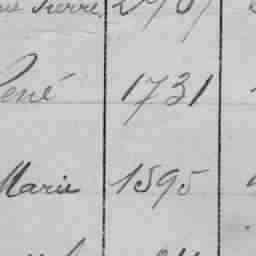 Pierre
René 1731
Marie 1595